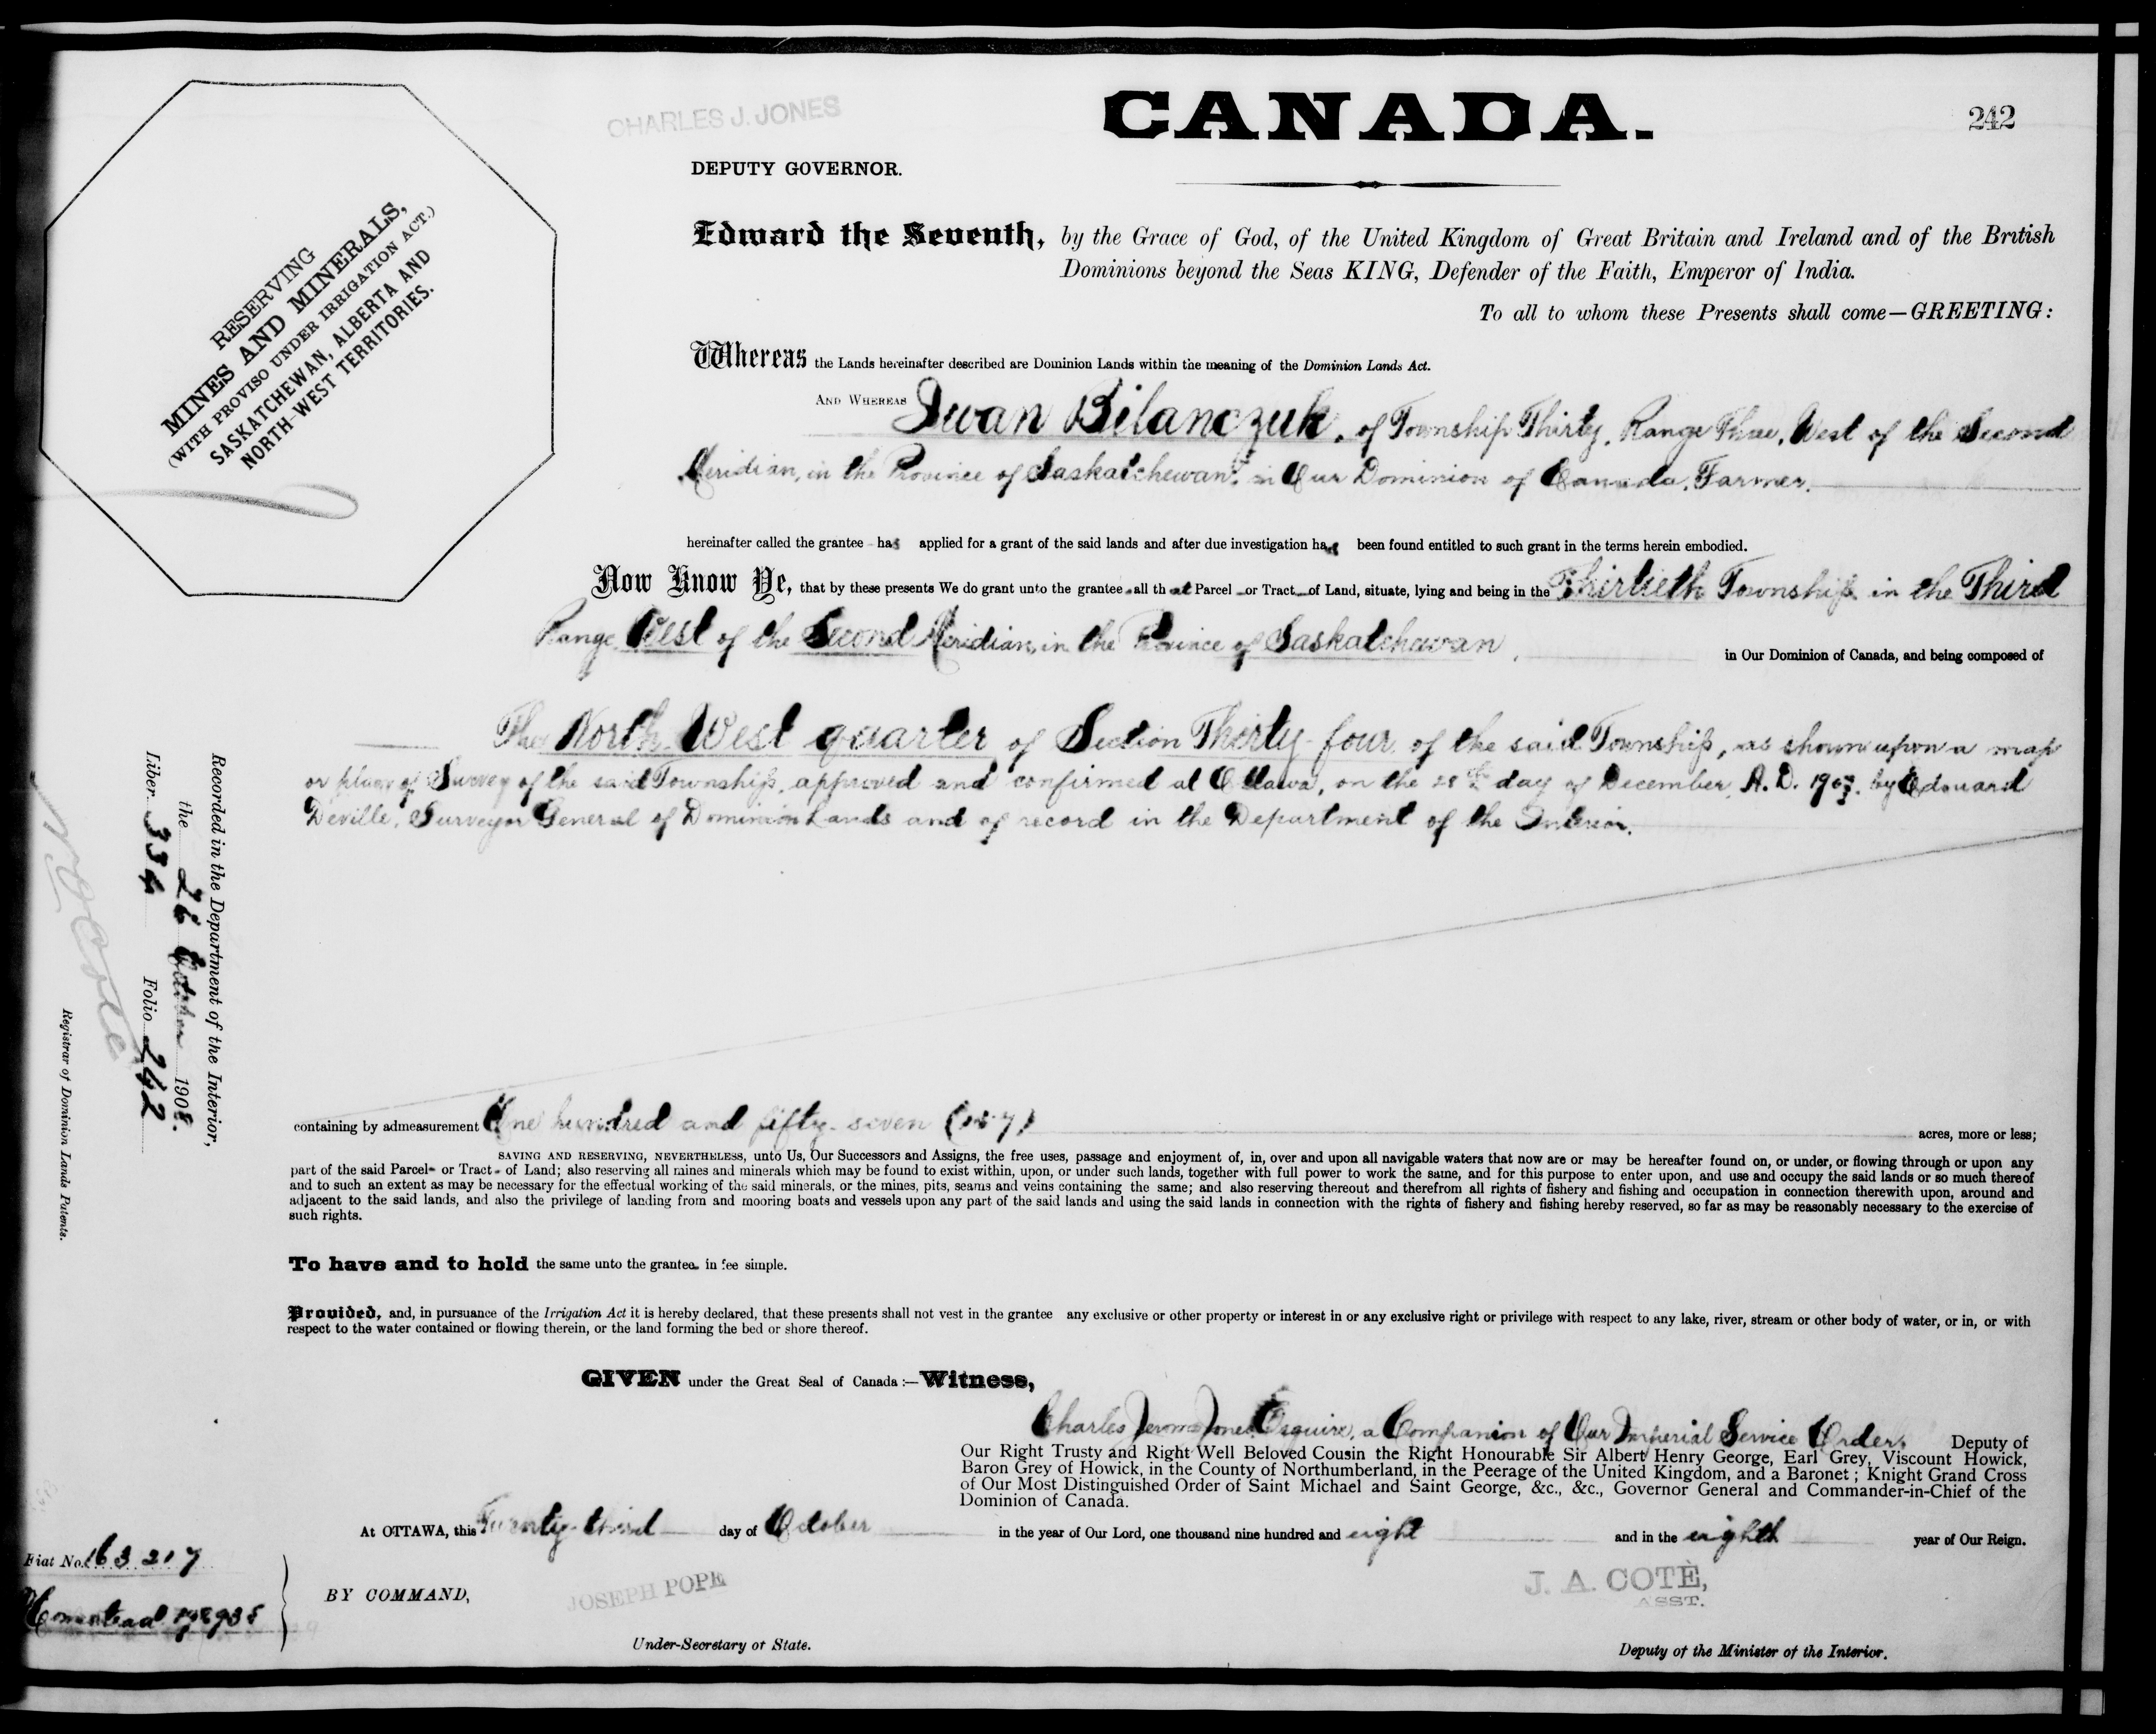 CHARLES J. JONES
CANADA.
242
DEPUTY GOVERNOR.
RESERVING
MINES AND MINERALS,
(WITH PROVISO UNDER IRRIGATION ACT.)
SASKATCHEWAN, ALBERTA AND
NORTH-WEST TERRITORIES.
Edward the Seventh, by the Grace of God, of the United Kingdom of Great Britain and Ireland and of the British
Dominions beyond the Seas KING, Defender of the Faith, Emperor of India.
To all to whom these Presents shall come—GREETING:
Whereas the Lands hereinafter described are Dominion Lands within the meaning of the Dominion Lands Act.
AND WHEREAS Iwan Bilanczuk, of Township Thirty, Range Three, West of the Second
Meridian, in the Province of Saskatchewan, in Our Dominion of Canada, Farmer.
hereinafter called the grantee has applied for a grant of the said lands and after due investigation has been found entitled to such grant in the terms herein embodied.
Now Know Ye, that by these presents We do grant unto the grantee all that Parcel or Tract of Land, situate, lying and being in the Thirtieth Township in the Third
Range West of the Second Meridian, in the Province of Saskatchewan, in Our Dominion of Canada, and being composed of
The North West quarter of Section Thirty-four of the said Township, as shown upon a map
or plan of Survey of the said Township, approved and confirmed at Ottawa, on the 28th day of December, A.D. 1903, by Edouard
Deville, Surveyor General of Dominion Lands and of record in the Department of the Interior.
containing by admeasurement One hundred and fifty-seven (157) acres, more or less;
SAVING AND RESERVING, NEVERTHELESS, unto Us, Our Successors and Assigns, the free uses, passage and enjoyment of, in, over and upon all navigable waters that now are or may be hereafter found on, or under, or flowing through or upon any
part of the said Parcel or Tract of Land; also reserving all mines and minerals which may be found to exist within, upon, or under such lands, together with full power to work the same, and for this purpose to enter upon, and use and occupy the said lands or so much thereof
and to such an extent as may be necessary for the effectual working of the said minerals, or the mines, pits, seams and veins containing the same; and also reserving thereout and therefrom all rights of fishery and fishing and occupation in connection therewith upon, around and
adjacent to the said lands, and also the privilege of landing from and mooring boats and vessels upon any part of the said lands and using the said lands in connection with the rights of fishery and fishing hereby reserved, so far as may be reasonably necessary to the exercise of
such rights.
To have and to hold the same unto the grantee in fee simple.
Provided, and, in pursuance of the Irrigation Act it is hereby declared, that these presents shall not vest in the grantee any exclusive or other property or interest in or any exclusive right or privilege with respect to any lake, river, stream or other body of water, or in, or with
respect to the water contained or flowing therein, or the land forming the bed or shore thereof.
GIVEN under the Great Seal of Canada:—Witness,
Charles Jerome Jones Esquire, a Companion of Our Imperial Service Order, Deputy of
Our Right Trusty and Right Well Beloved Cousin the Right Honourable Sir Albert Henry George, Earl Grey, Viscount Howick,
Baron Grey of Howick, in the County of Northumberland, in the Peerage of the United Kingdom, and a Baronet; Knight Grand Cross
of Our Most Distinguished Order of Saint Michael and Saint George, &c., &c., Governor General and Commander-in-Chief of the
Dominion of Canada.
At OTTAWA, this Twenty-third day of October in the year of Our Lord, one thousand nine hundred and eight and in the eighth year of Our Reign.
BY COMMAND,
JOSEPH POPE
Under-Secretary of State.
J. A. COTÈ,
ASST.
Deputy of the Minister of the Interior.
Recorded in the Department of the Interior,
the 26 October 1908.
Liber 334 Folio 242
Registrar of Dominion Lands Patents.
Fiat No. 163217
Homestead